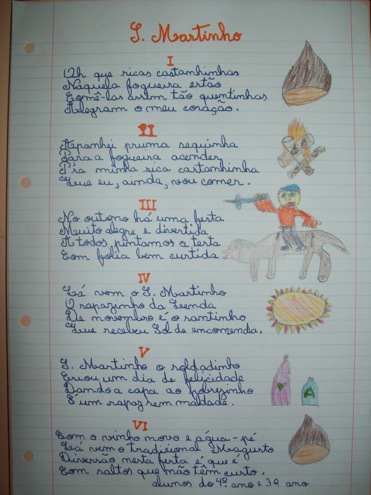 S. Martinho
I
Oh que ricas castanhinhas
Naquela fogueira estão
Comê-las assim tão quentinhas
Alegram o meu coração.
II
Apanhei pruma sequinha
Para a fogueira acender
P'ra minha rica castanhinha
Que eu, ainda, vou comer.
III
No outono há uma festa
Muito alegre e divertida
A todos pintamos a testa
Com folia bem curtida.
IV
Lá vem o S. Martinho
O rapazinho da lenda
De novembro é o santinho
Que recebeu Sol de encomenda.
V
S. Martinho o soldadinho
Criou um dia de felicidade
Dando a capa ao pobrezinho
É um rapaz sem maldade.
VI
Com o vinho novo e água-pé
Lá vem o tradicional magusto
Diversão nesta festa é que é
Com saltos que não têm custo.
alunos do 4º ano e 3º ano